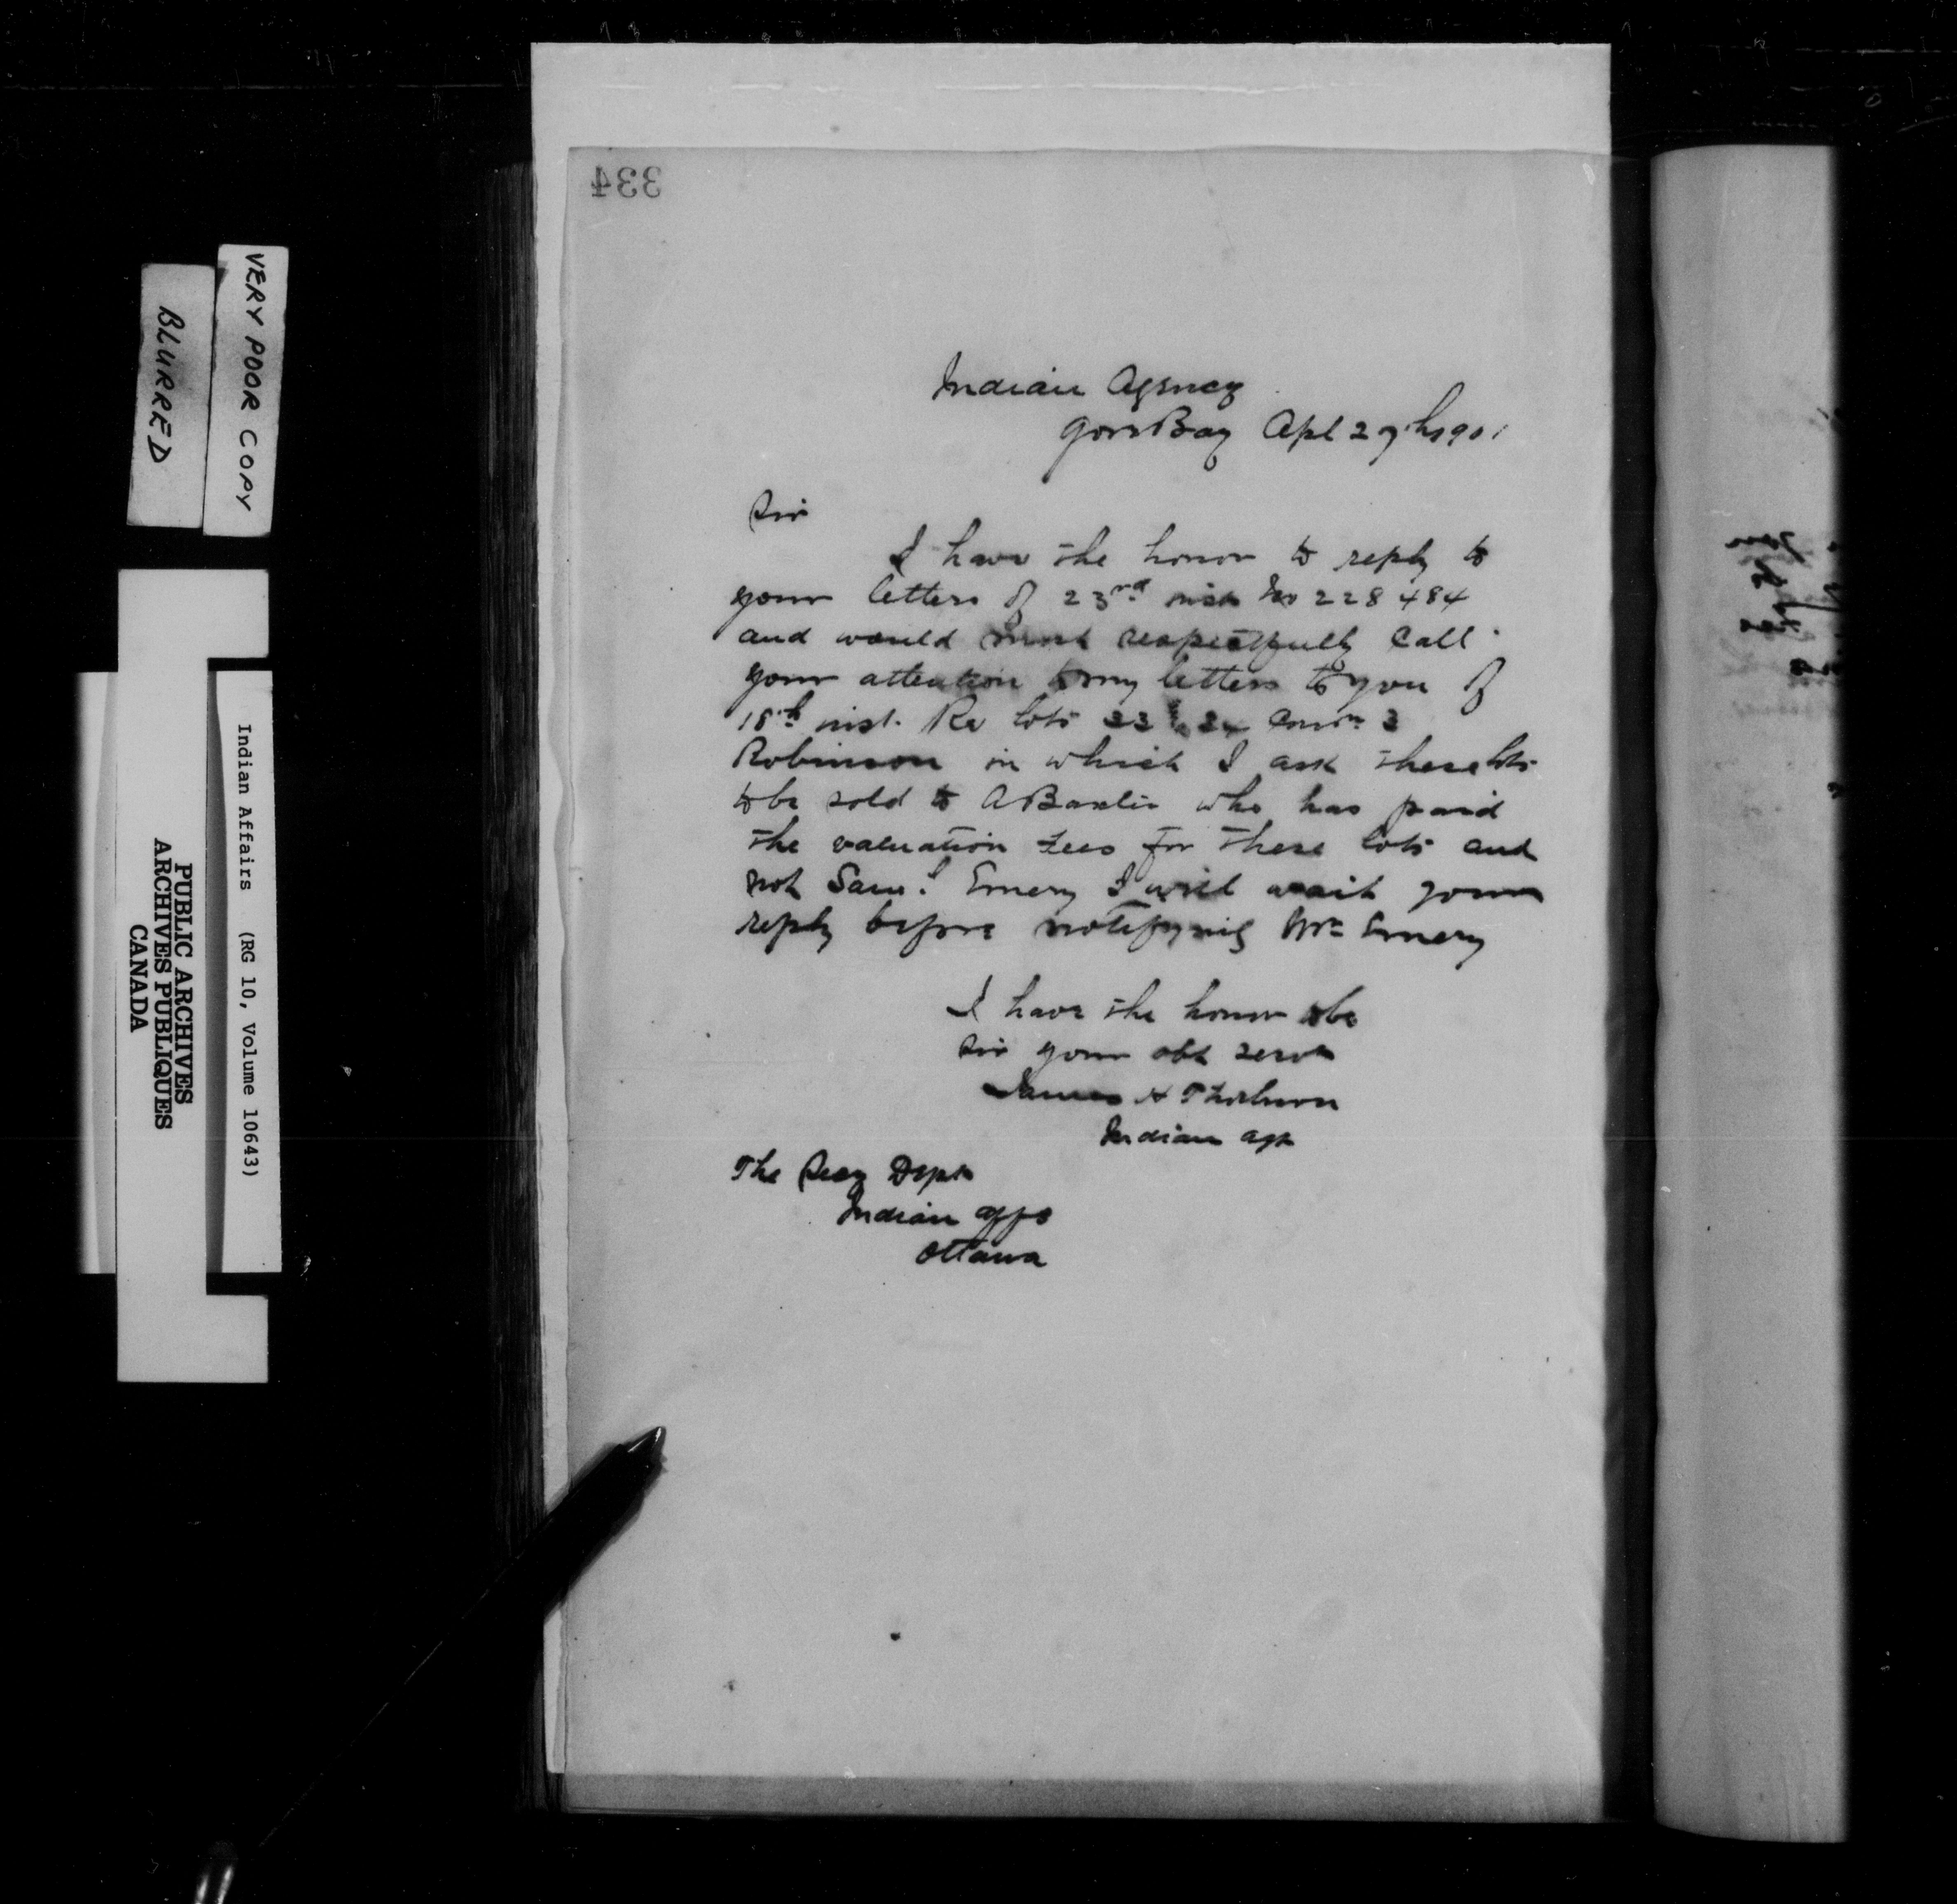 334
Indian Agency
Gore Bay Apl 27th 1901
Sir
I have the honor to reply to
your letters of 23rd inst No 228484
and would most respectfully call
your attention to my letters to you of
18th inst. Re lots 23 & 24 Con 3
Robinson in which I ask these lots
to be sold to A Baxter who has paid
the valuation fees for these lots and
not Saml Emery I will await your
reply before notifying Mr Emery
I have the honor to be
Sir your obt servt
James H Thorburn
Indian Agt
The Secy Dept
Indian Affs
Ottawa
VERY POOR COPY
BLURRED
Indian Affairs (RG 10, Volume 10643)
PUBLIC ARCHIVES
ARCHIVES PUBLIQUES
CANADA